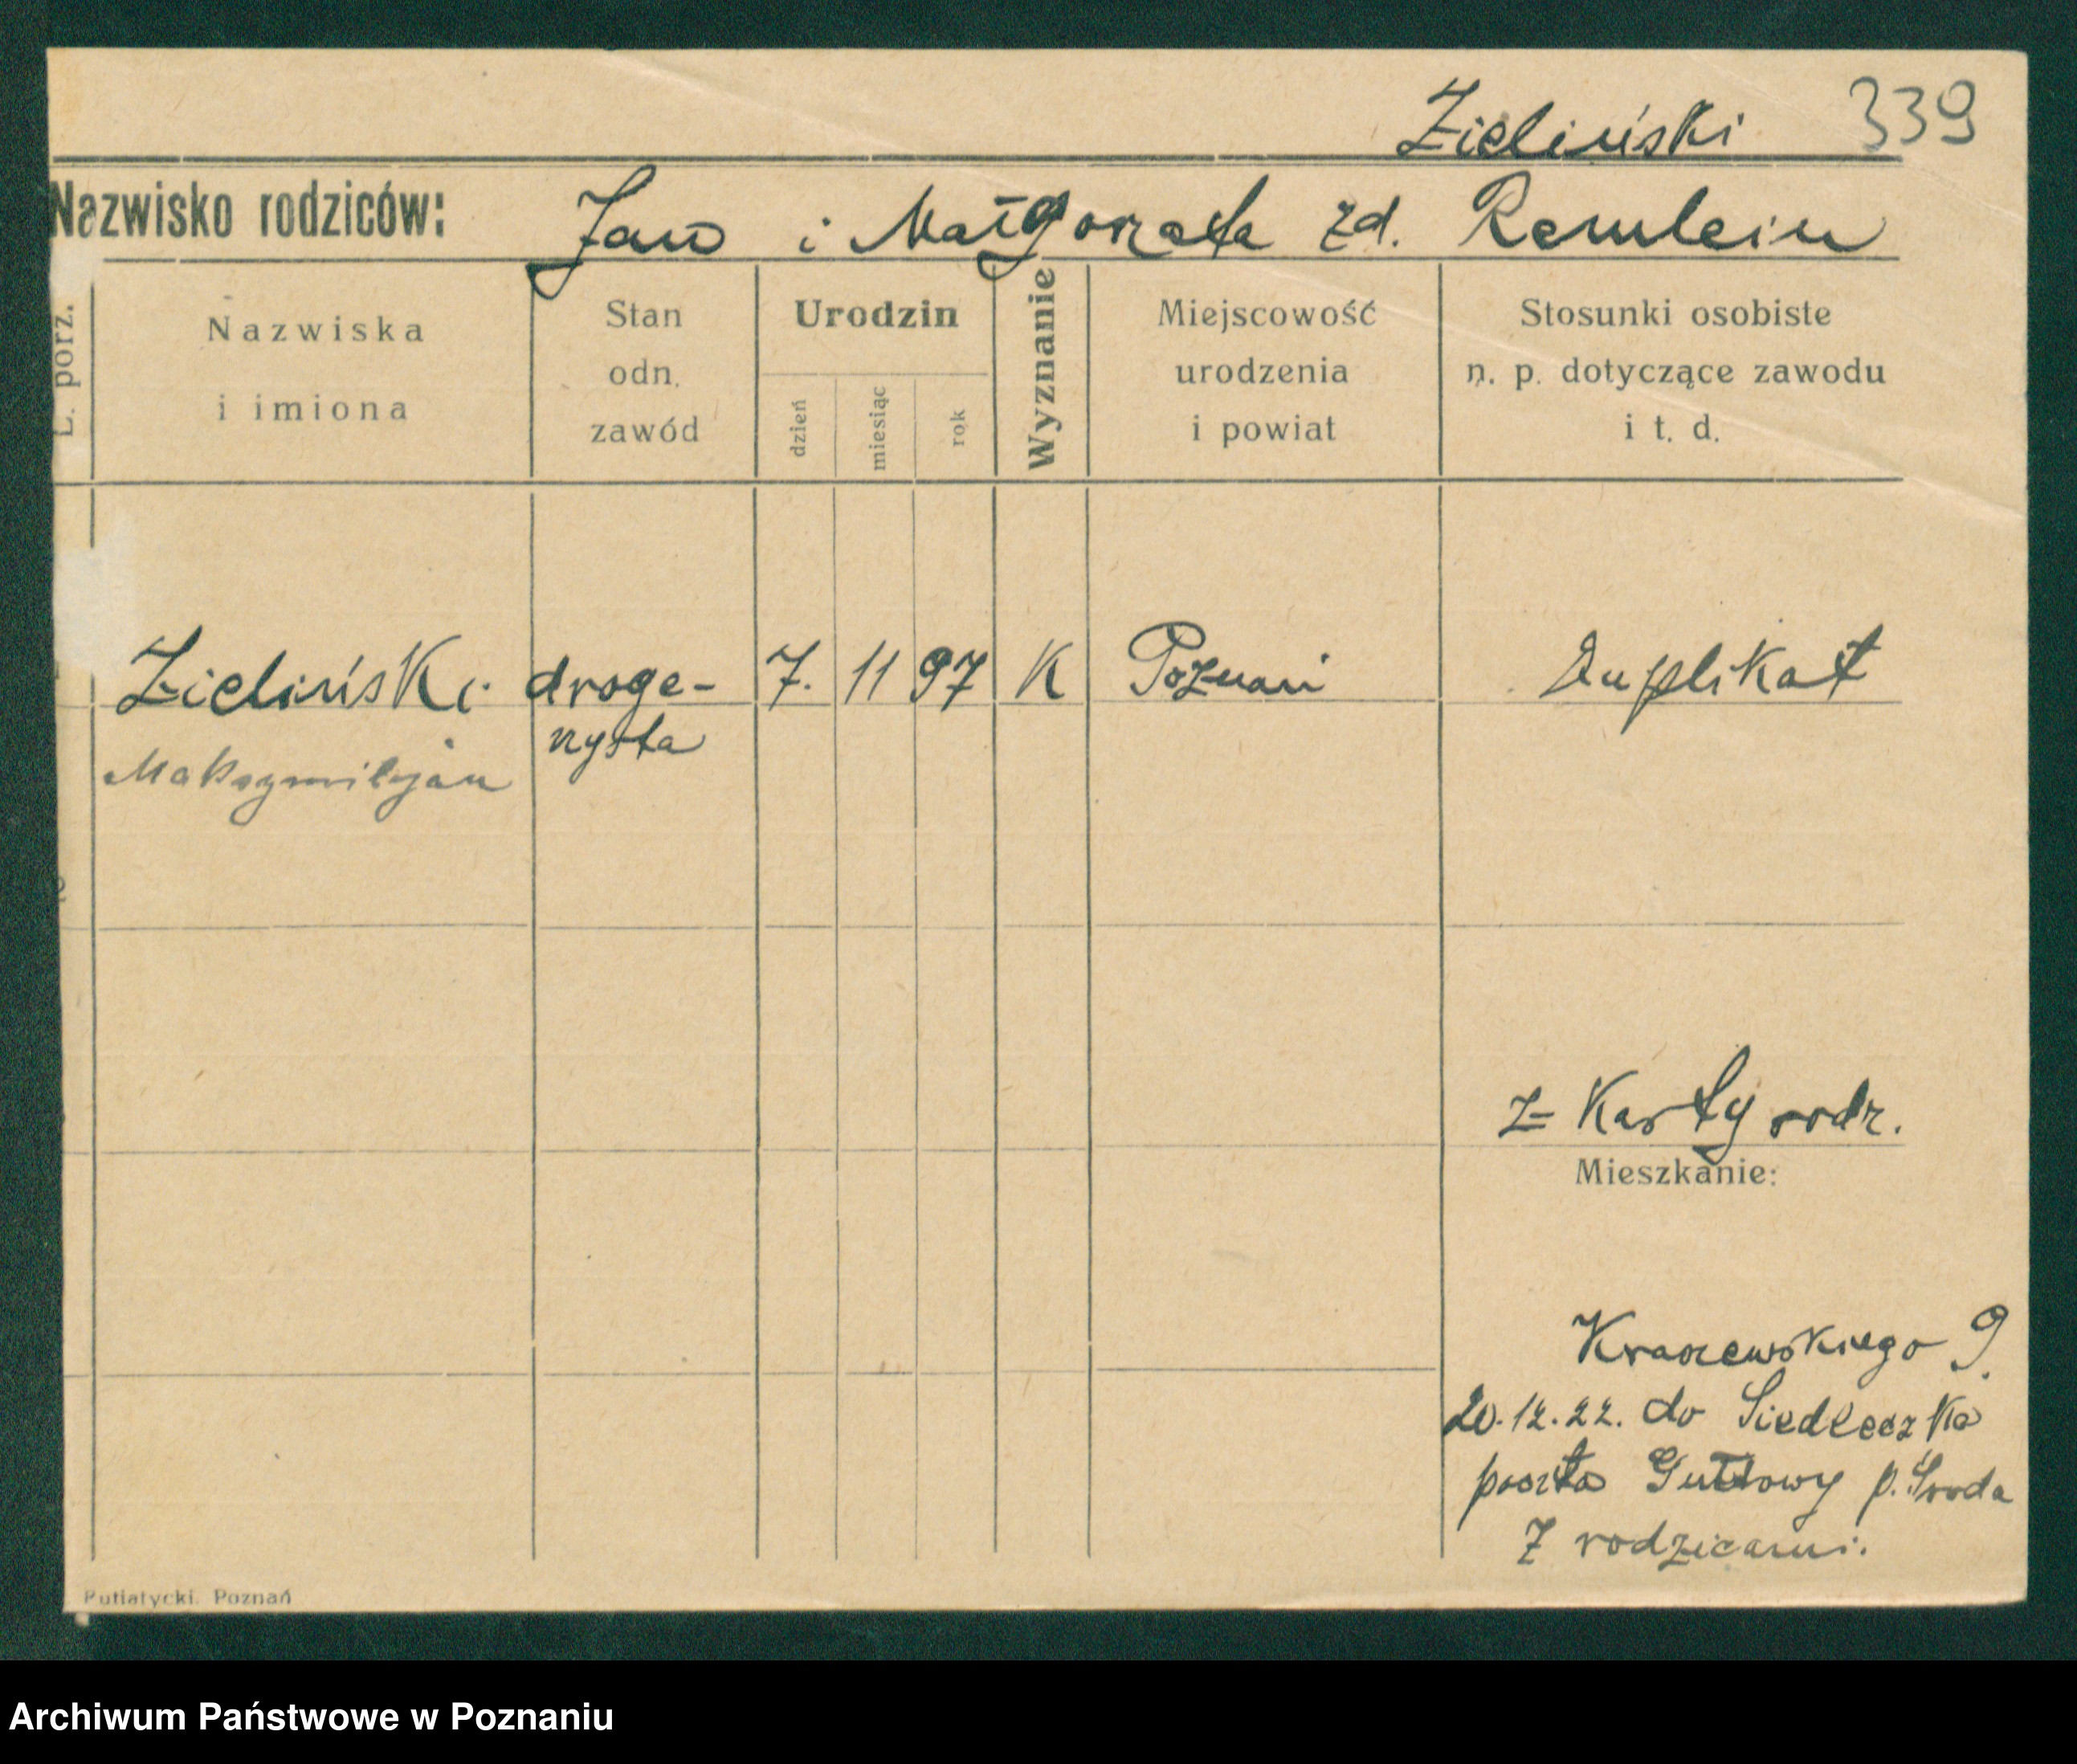 Zieliński 339
Nazwisko rodziców: Jan i Małgorzata zd. Remlein
L. porz.
Nazwiska
i imiona
Stan
odn.
zawód
Urodzin
dzień
miesiąc
rok
Wyznanie
Miejscowość
urodzenia
i powiat
Stosunki osobiste
n. p. dotyczące zawodu
i t. d.
Zieliński droge- 7. 11 97 K Poznań Duplikat
rzysta
Maksymiljan
z Karty rodz.
Mieszkanie:
Kraszewskiego 9.
20.12.22. do Siedleczka
poczta Gułtowy p. Środa
Z rodzicami.
Putiatycki. Poznań
Archiwum Państwowe w Poznaniu